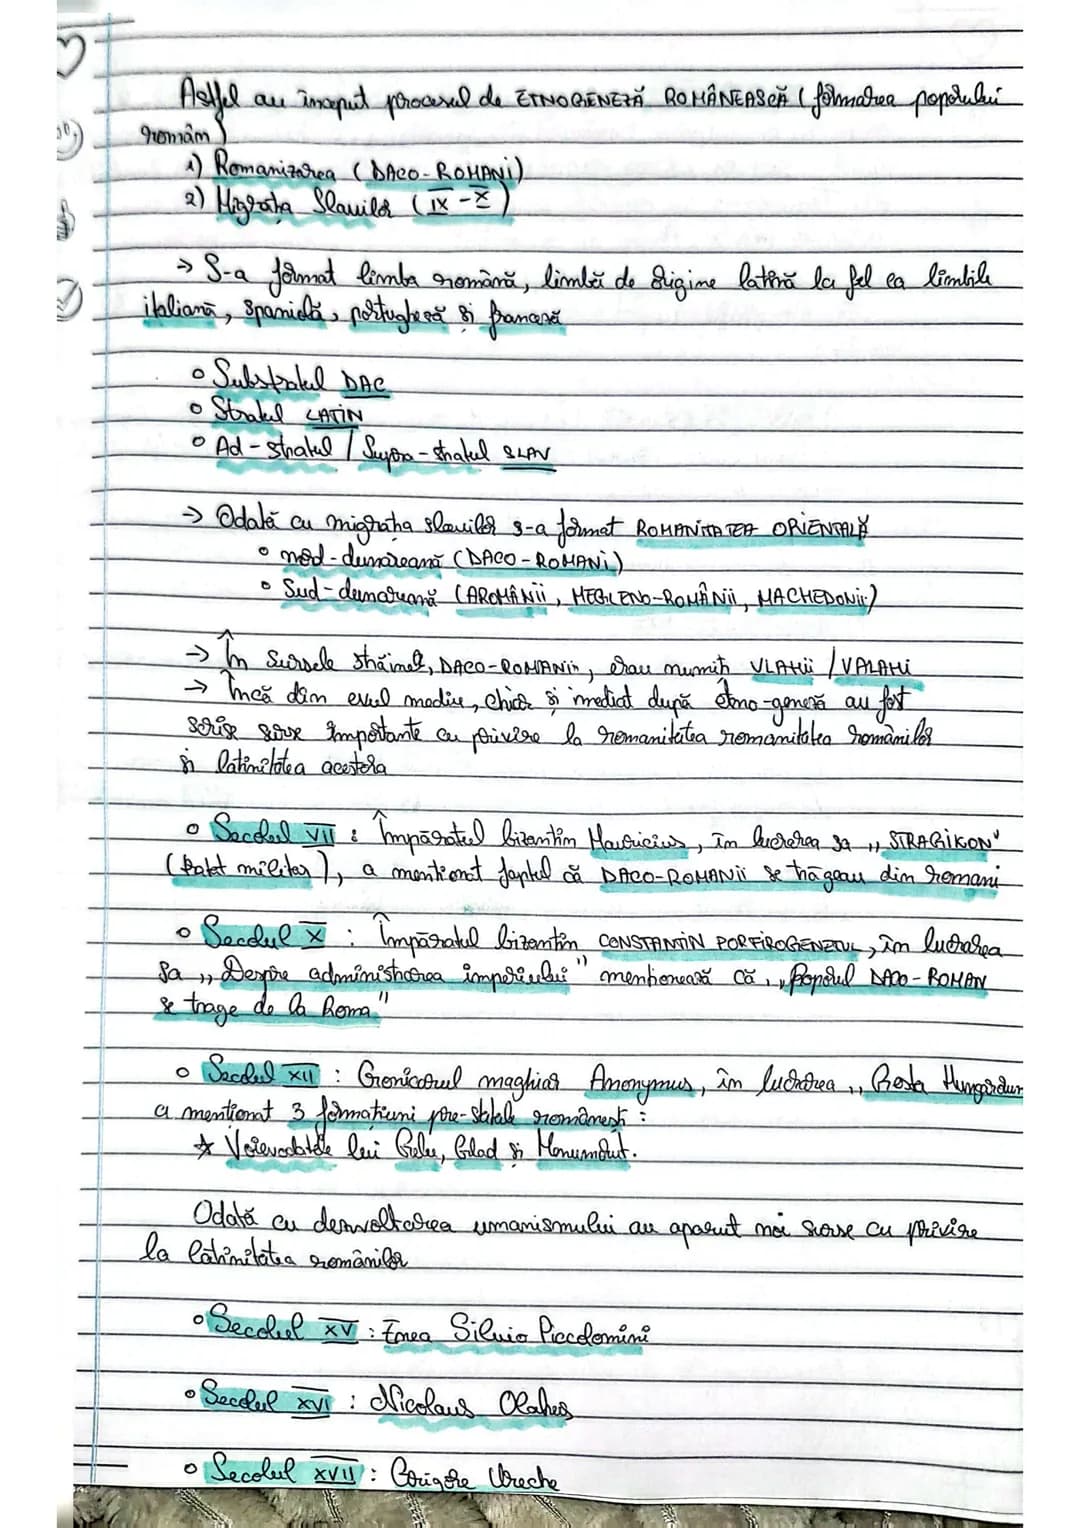 Astfel au început procesul de ETNOGENEZĂ ROMÂNEASCĂ (formarea poporului
român)
1) Romanizarea (DACO-ROMANI)
2) Migrația Slavilor (IX-X)
→ S-a format limba română, limbă de origine latină la fel ca limbile
italiană, spaniolă, portugheză și franceză
○ Substratul DAC
○ Stratul LATIN
○ Ad-stratul / Supra-stratul SLAV
→ Odată cu migrația slavilor s-a format ROMANITATEA ORIENTALĂ
○ nord-dunăreană (DACO-ROMANI)
○ Sud-dunăreană (AROMÂNII, MEGLENO-ROMÂNII, MACHEDONII)
→ În sursele străine, DACO-ROMANII, erau numiți VLAHII / VALAHI
→ Încă din evul mediu, chiar și imediat după etno-geneză au fost
scrise surse importante cu privire la romanitatea romanitatea românilor
și latinitatea acestora
○ Secolul VII : Împăratul bizantin Mauricius, în lucrarea sa „STRAGIKON"
( militar), a menționat faptul că DACO-ROMANII se trăgeau din romani
○ Secolul X : Împăratul bizantin CONSTANTIN PORFIROGENETUL, în lucrarea
sa „Despre administrarea imperiului" menționează că „Poporul DACO-ROMAN
se trage de la Roma"
○ Secolul XII : Cronicarul maghiar Anonymus, în lucrarea „Gesta Hungarorum
a menționat 3 formațiuni pre-statale românești :
☆ Voievodatele lui Gelu, Glad și Menumorut.
Odată cu dezvoltarea umanismului au apărut noi surse cu privire
la latinitatea românilor
○ Secolul XV : Enea Silvio Piccolomini
○ Secolul XVI : Nicolaus Olahus
○ Secolul XVII : Grigore Ureche